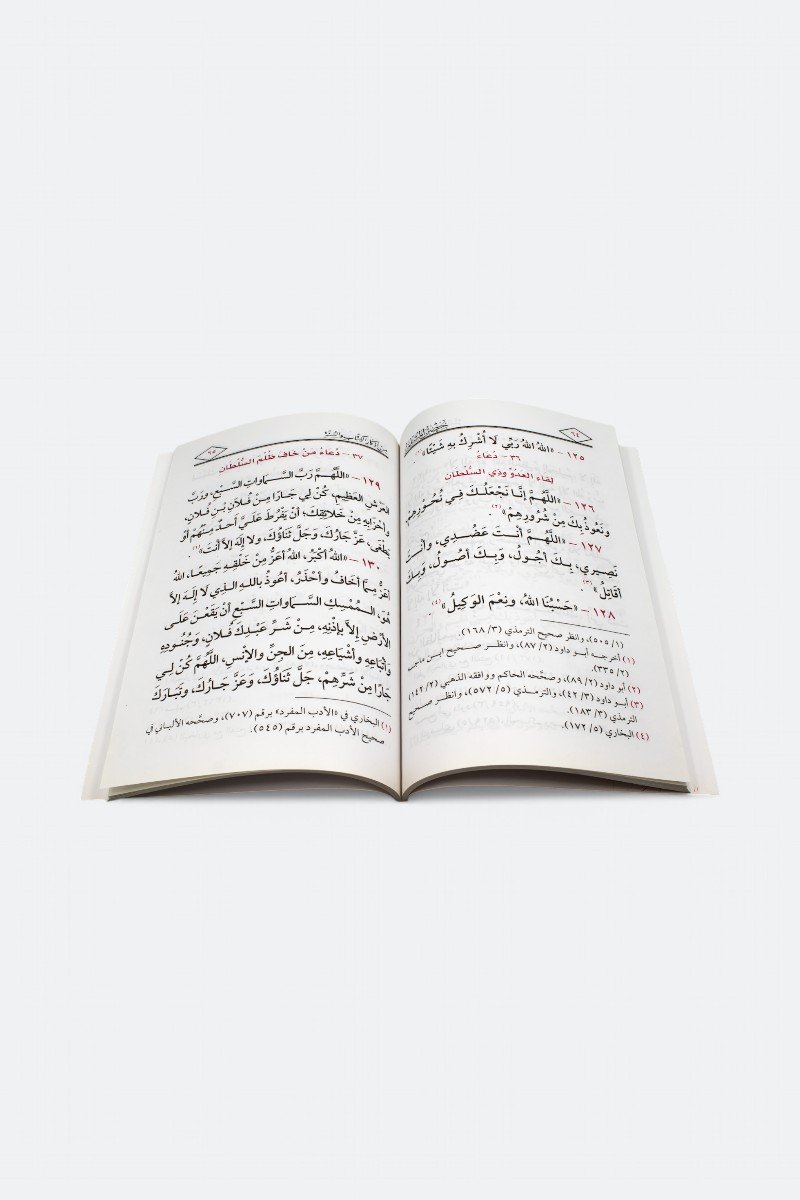 ٦٤
١٢٥ – «اللهُ اللهُ رَبِّي لَا أُشْرِكُ بِهِ شَيْئًا»(١).
٣٦ – دُعَاءُ
لِقَاءِ العَدُوِّ وَذِي السُّلْطَانِ
١٢٦ – «اللَّهُمَّ إِنَّا نَجْعَلُكَ فِي نُحُورِهِمْ،
وَنَعُوذُ بِكَ مِنْ شُرُورِهِمْ»(٢).
١٢٧ – «اللَّهُمَّ أَنْتَ عَضُدِي، وَأَنْتَ
نَصِيرِي، بِكَ أَجُولُ، وَبِكَ أَصُولُ، وَبِكَ
أُقَاتِلُ»(٣).
١٢٨ – «حَسْبُنَا اللهُ، ونِعْمَ الوَكِيلُ»(٤).
(١/ ٥٠٥)، وانظر صحيح الترمذي (٣/ ١٦٨).
(١) أخرجه أبو داود (٢/ ٨٧)، وانظر صحيح ابن ماجه
(٢/ ٣٣٥).
(٢) أبو داود (٢/ ٨٩)، وصححه الحاكم ووافقه الذهبي (٢/ ١٤٢)
(٣) أبو داود (٣/ ٤٢)، والترمذي (٥/ ٥٧٢)، وانظر صحيح
الترمذي (٣/ ١٨٣).
(٤) البخاري (٥/ ١٧٢).
٦٥
٣٧ – دُعَاءُ مَنْ خَافَ ظُلْمَ السُّلْطَانِ
١٢٩ – «اللَّهُمَّ رَبَّ السَّمَاوَاتِ السَّبْعِ، وَرَبَّ
العَرْشِ العَظِيمِ، كُنْ لِي جَارًا مِنْ فُلَانِ بْنِ فُلَانٍ،
وَأَحْزَابِهِ مِنْ خَلَائِقِكَ؛ أَنْ يَفْرُطَ عَلَيَّ أَحَدٌ مِنْهُمْ أَوْ
يَطْغَى، عَزَّ جَارُكَ، وَجَلَّ ثَنَاؤُكَ، ولا إِلَهَ إِلَّا أَنْتَ»(١).
١٣٠ – «اللهُ أَكْبَرُ، اللهُ أَعَزُّ مِنْ خَلْقِهِ جَمِيعًا، اللهُ
أَعَزُّ مِمَّا أَخَافُ وَأَحْذَرُ، أَعُوذُ بِاللهِ الَّذِي لَا إِلَهَ إِلَّا
هُوَ، المُمْسِكِ السَّمَاوَاتِ السَّبْعِ أَنْ يَقَعْنَ عَلَى
الأَرْضِ إِلَّا بِإِذْنِهِ، مِنْ شَرِّ عَبْدِكَ فُلَانٍ، وَجُنُودِهِ
وَأَتْبَاعِهِ وَأَشْيَاعِهِ، مِنَ الجِنِّ والإِنْسِ، اللَّهُمَّ كُنْ لِي
جَارًا مِنْ شَرِّهِمْ، جَلَّ ثَنَاؤُكَ، وَعَزَّ جَارُكَ، وَتَبَارَكَ
(١) البخاري في «الأدب المفرد» برقم (٧٠٧)، وصححه الألباني في
صحيح الأدب المفرد برقم (٥٤٥).